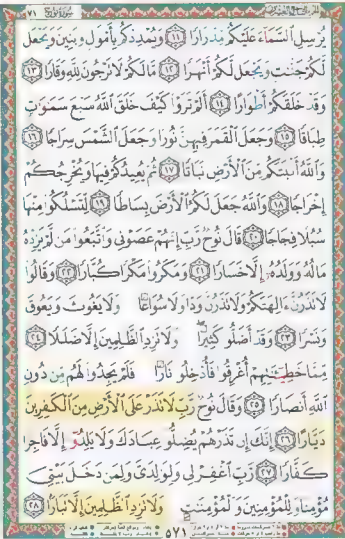 سورة نوح ٧١
يُرْسِلِ ٱلسَّمَآءَ عَلَيْكُم مِّدْرَارًا ﴿١١﴾ وَيُمْدِدْكُم بِأَمْوَٰلٍ وَبَنِينَ وَيَجْعَل
لَّكُمْ جَنَّٰتٍ وَيَجْعَل لَّكُمْ أَنْهَٰرًا ﴿١٢﴾ مَّا لَكُمْ لَا تَرْجُونَ لِلَّهِ وَقَارًا ﴿١٣﴾
وَقَدْ خَلَقَكُمْ أَطْوَارًا ﴿١٤﴾ أَلَمْ تَرَوْا۟ كَيْفَ خَلَقَ ٱللَّهُ سَبْعَ سَمَٰوَٰتٍ
طِبَاقًا ﴿١٥﴾ وَجَعَلَ ٱلْقَمَرَ فِيهِنَّ نُورًا وَجَعَلَ ٱلشَّمْسَ سِرَاجًا ﴿١٦﴾
وَٱللَّهُ أَنۢبَتَكُم مِّنَ ٱلْأَرْضِ نَبَاتًا ﴿١٧﴾ ثُمَّ يُعِيدُكُمْ فِيهَا وَيُخْرِجُكُمْ
إِخْرَاجًا ﴿١٨﴾ وَٱللَّهُ جَعَلَ لَكُمُ ٱلْأَرْضَ بِسَاطًا ﴿١٩﴾ لِّتَسْلُكُوا۟ مِنْهَا
سُبُلًا فِجَاجًا ﴿٢٠﴾ قَالَ نُوحٌ رَّبِّ إِنَّهُمْ عَصَوْنِى وَٱتَّبَعُوا۟ مَن لَّمْ يَزِدْهُ
مَالُهُۥ وَوَلَدُهُۥٓ إِلَّا خَسَارًا ﴿٢١﴾ وَمَكَرُوا۟ مَكْرًا كُبَّارًا ﴿٢٢﴾ وَقَالُوا۟
لَا تَذَرُنَّ ءَالِهَتَكُمْ وَلَا تَذَرُنَّ وَدًّا وَلَا سُوَاعًا وَلَا يَغُوثَ وَيَعُوقَ
وَنَسْرًا ﴿٢٣﴾ وَقَدْ أَضَلُّوا۟ كَثِيرًا وَلَا تَزِدِ ٱلظَّٰلِمِينَ إِلَّا ضَلَٰلًا ﴿٢٤﴾
مِّمَّا خَطِيٓـَٰٔتِهِمْ أُغْرِقُوا۟ فَأُدْخِلُوا۟ نَارًا فَلَمْ يَجِدُوا۟ لَهُم مِّن دُونِ
ٱللَّهِ أَنصَارًا ﴿٢٥﴾ وَقَالَ نُوحٌ رَّبِّ لَا تَذَرْ عَلَى ٱلْأَرْضِ مِنَ ٱلْكَٰفِرِينَ
دَيَّارًا ﴿٢٦﴾ إِنَّكَ إِن تَذَرْهُمْ يُضِلُّوا۟ عِبَادَكَ وَلَا يَلِدُوٓا۟ إِلَّا فَاجِرًا
كَفَّارًا ﴿٢٧﴾ رَّبِّ ٱغْفِرْ لِى وَلِوَٰلِدَىَّ وَلِمَن دَخَلَ بَيْتِىَ
مُؤْمِنًا وَلِلْمُؤْمِنِينَ وَٱلْمُؤْمِنَٰتِ وَلَا تَزِدِ ٱلظَّٰلِمِينَ إِلَّا تَبَارًۢا ﴿٢٨﴾
٥٧١